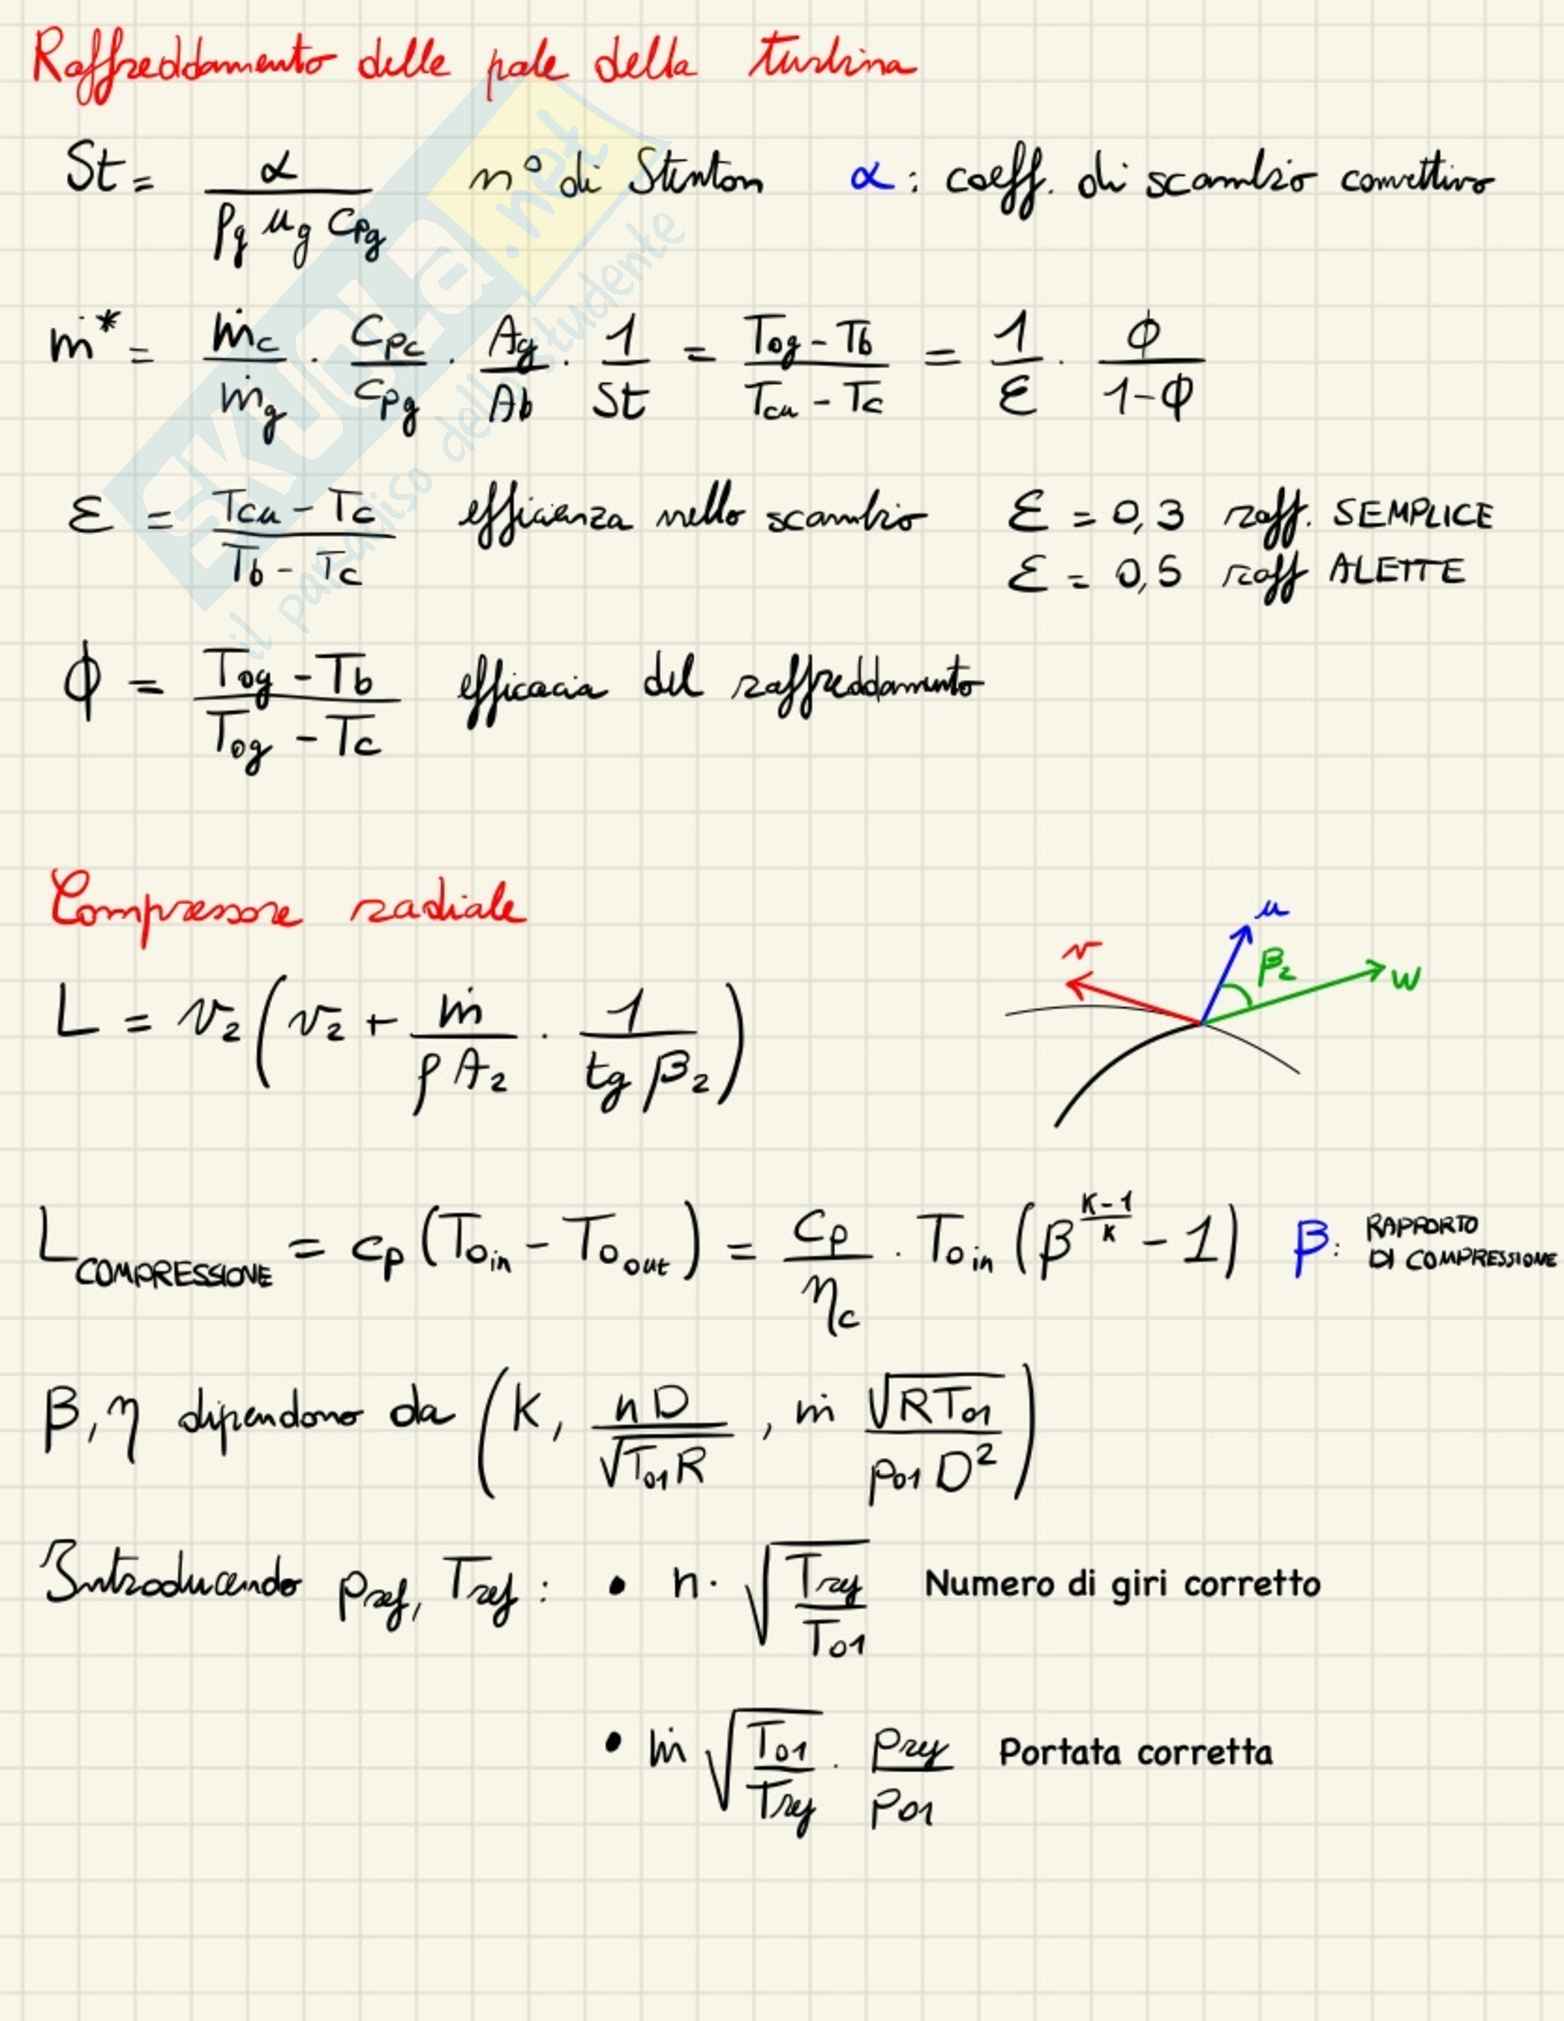 Raffreddamento delle pale della turbina
St = α / (ρg ug cpg) n° di Stenton α: coeff. di scambio convettivo
ṁ* = ṁc/ṁg · Cpc/Cpg · Ag/Ab · 1/St = (Tog - Tb)/(Tcu - Tc) = 1/ε · ϕ/(1-ϕ)
ε = (Tcu - Tc)/(Tb - Tc) efficienza nello scambio ε = 0,3 raff. SEMPLICE
ε = 0,5 raff ALETTE
ϕ = (Tog - Tb)/(Tog - Tc) efficacia del raffreddamento
Compressore radiale
v u β2 w
L = v2 (v2 + ṁ/(ρ A2) · 1/(tg β2))
L COMPRESSIONE = cp (To in - To out) = cp/ηc · To in (β^((K-1)/K) - 1) β: RAPPORTO DI COMPRESSIONE
β, η dipendono da (K, nD/√(T01 R), ṁ √(RT01)/(p01 D²))
Introducendo pref, Tref: • n · √(Tref/T01) Numero di giri corretto
• ṁ √(T01/Tref) · pref/p01 Portata corretta
SKUOLA.net
il paradiso dello studente